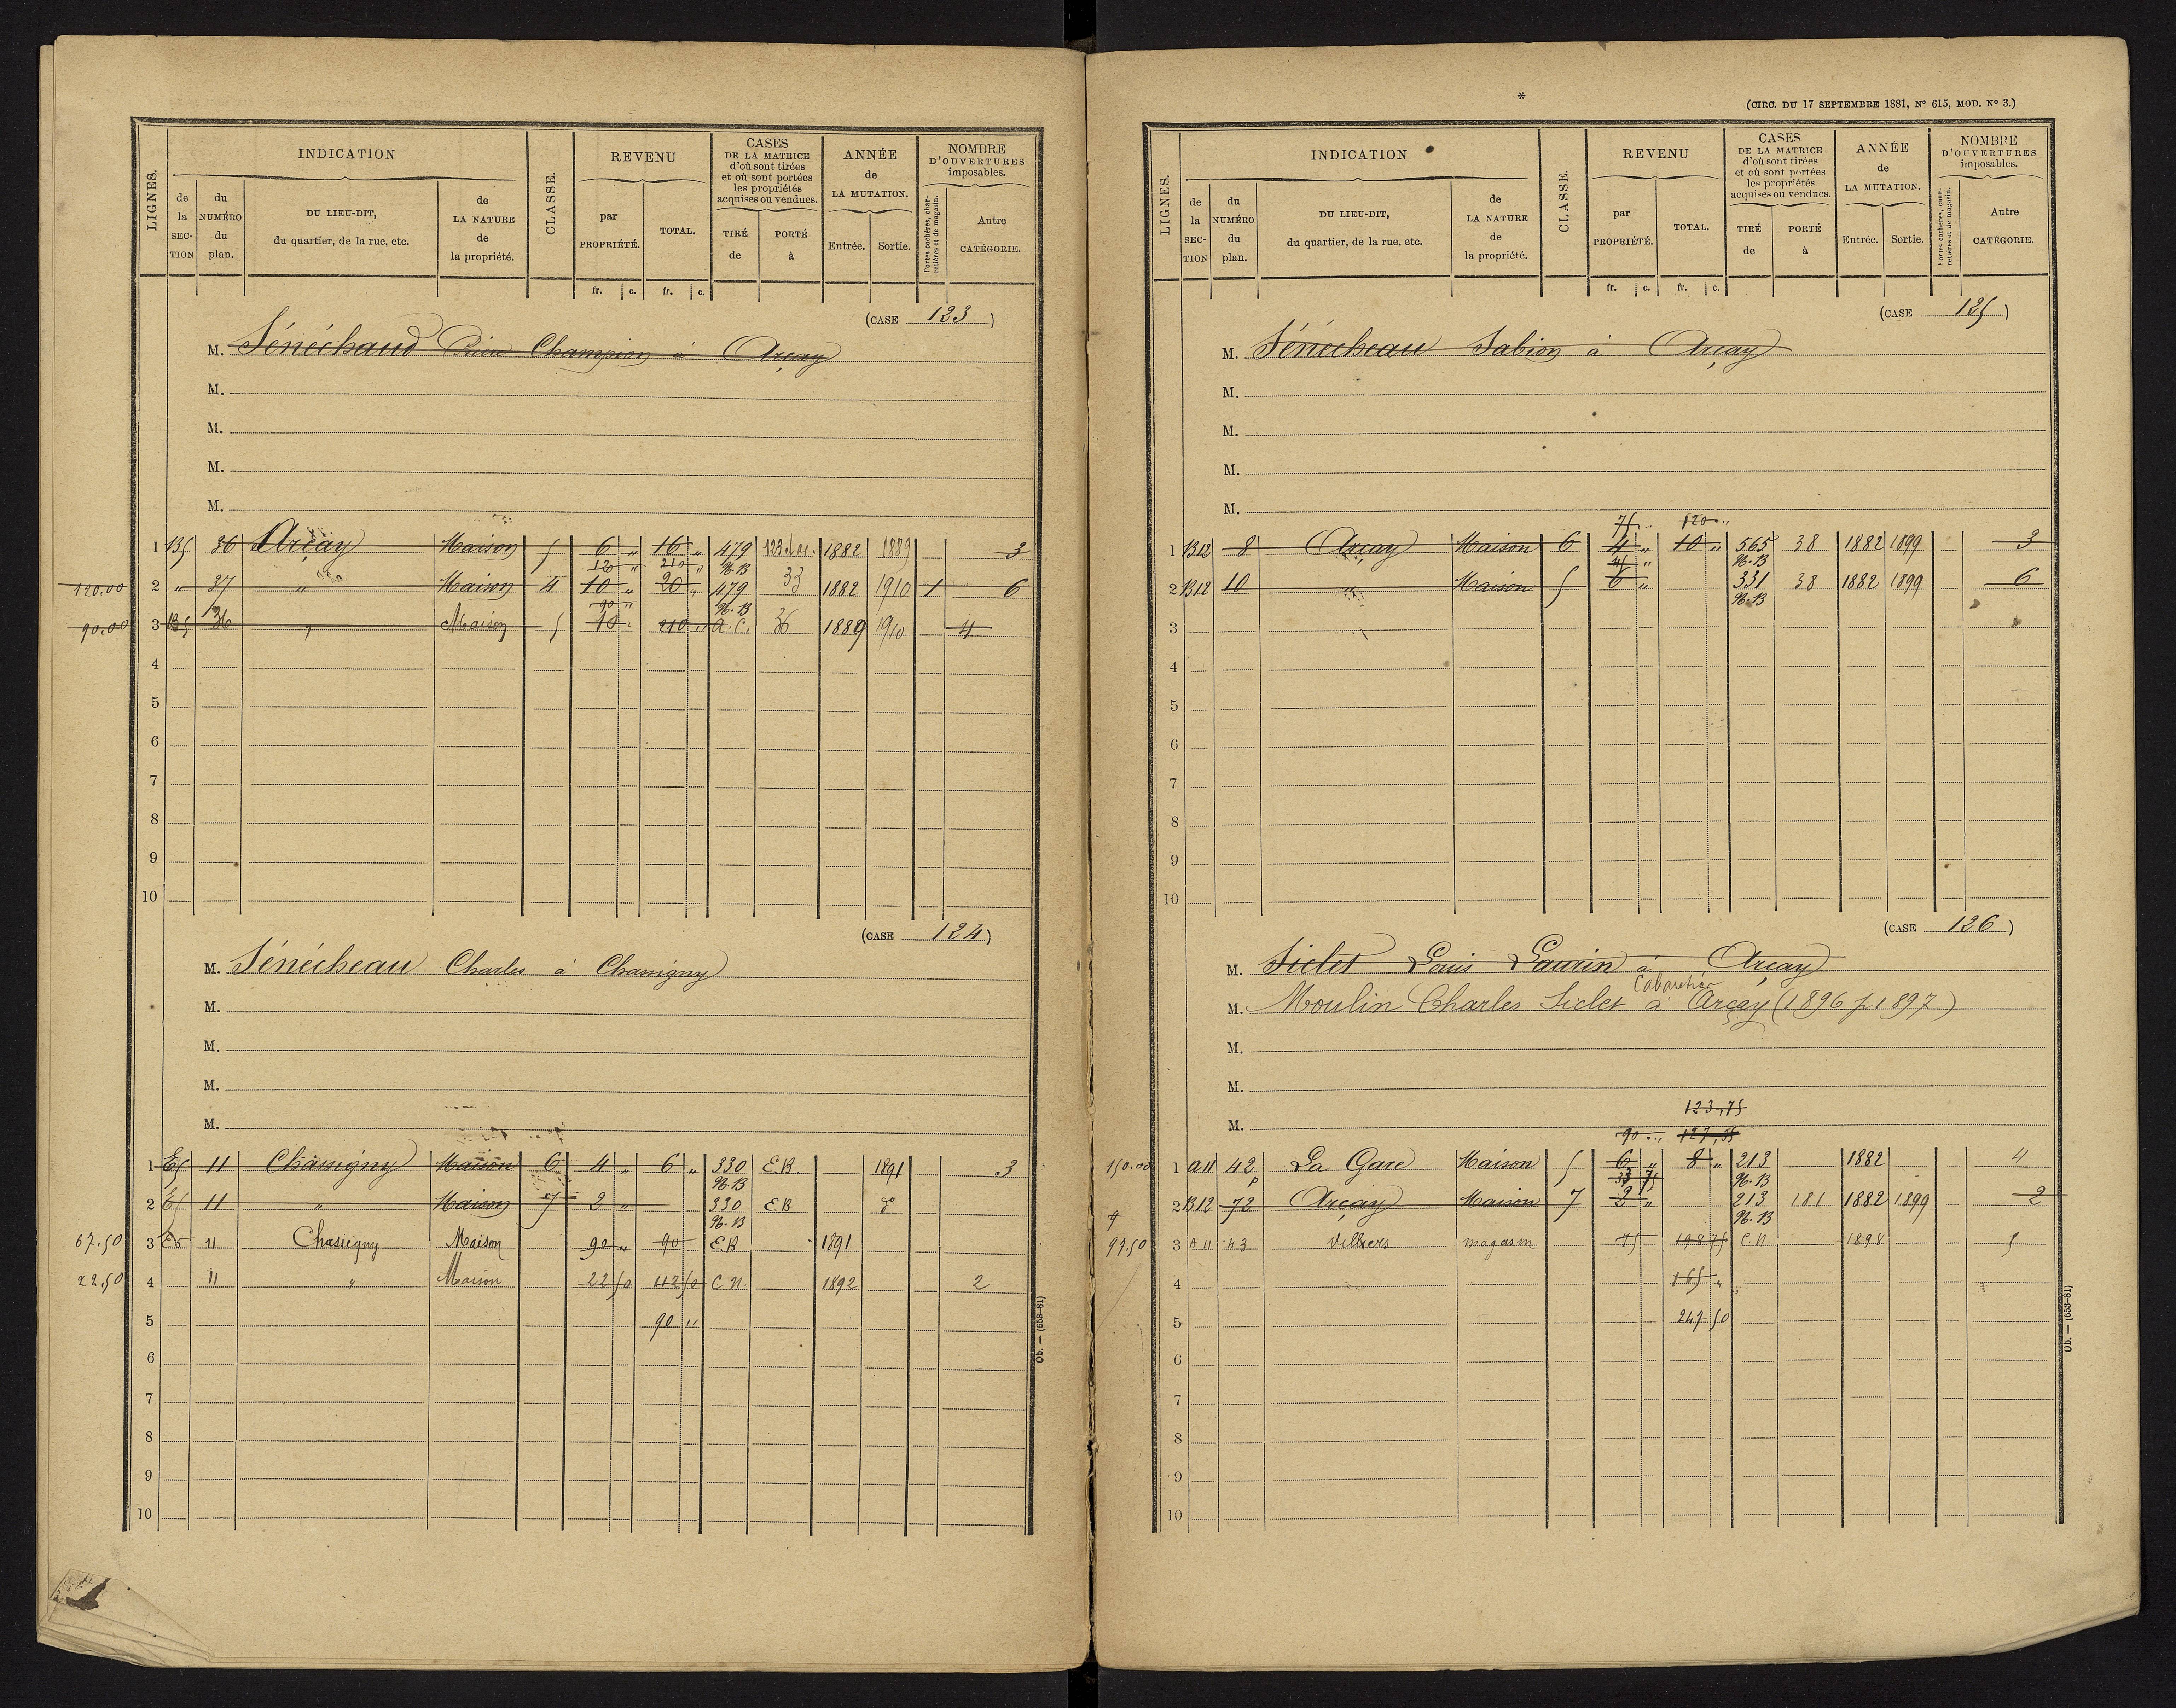 INDICATION
REVENU
CASES
DE LA MATRICE
d'où sont tirées
et où sont portées
les propriétés
acquises ou vendues.
ANNÉE
de
LA MUTATION.
NOMBRE
D'OUVERTURES
imposables.
LIGNES.
de la SECTION
du NUMÉRO du plan.
DU LIEU-DIT,
du quartier, de la rue, etc.
de LA NATURE de la propriété.
CLASSE.
par PROPRIÉTÉ.
TOTAL.
TIRÉ de
PORTÉ à
Entrée.
Sortie.
Portes cochères, charretières et de magasin.
Autre CATÉGORIE.
fr. c. fr. c.
(CASE 123)
M. Sénéchaud Champion à Arçay
M.
M.
M.
M.
1 B5 36 Arçay Maison 5 6 " 16 " 479 1882 1889 3
120 " 210 " N.B
120.00 2 " 37 " Maison 4 10 " 20 " 479 33 1882 1910 1 6
90 " N.B
90.00 3 B5 36 " Maison 5 10 " 210 " a.c. 36 1889 1910 4
4
5
6
7
8
9
10
(CASE 124)
M. Sénécheau Charles à Chassigny
M.
M.
M.
M.
1 E5 11 Chassigny Maison 6 4 " 6 " 330 E.B. 1891 3
N.B
2 E5 11 " Maison 7 2 " 330 EB do
N.B
67.50 3 E5 11 Chassigny Maison 90 " 90 E.B 1891
22.50 4 11 " Maison 22 50 112 50 C.N. 1892 2
5 90 "
6
7
8
9
10
Ob. — (653-81)
*
(CIRC. DU 17 SEPTEMBRE 1881, N° 615, MOD. N° 3.)
INDICATION
REVENU
CASES
DE LA MATRICE
d'où sont tirées
et où sont portées
les propriétés
acquises ou vendues.
ANNÉE
de
LA MUTATION.
NOMBRE
D'OUVERTURES
imposables.
LIGNES.
de la SECTION
du NUMÉRO du plan.
DU LIEU-DIT,
du quartier, de la rue, etc.
de LA NATURE de la propriété.
CLASSE.
par PROPRIÉTÉ.
TOTAL.
TIRÉ de
PORTÉ à
Entrée.
Sortie.
Portes cochères, charretières et de magasin.
Autre CATÉGORIE.
fr. c. fr. c.
(CASE 125)
M. Sénécheau Sabion à Arçay
M.
M.
M.
M.
75 " 120 "
1 B12 8 Arçay Maison 6 4 " 10 " 565 38 1882 1899 3
45 " N.B
2 B12 10 " Maison 5 6 " 331 38 1882 1899 6
N.B
3
4
5
6
7
8
9
10
(CASE 126)
M. Siclet Louis Laurin à Arçay
Cabaretier
M. Moulin Charles Siclet à Arçay (1896 p 1897)
M.
M.
123,75
M.
90 "
150.00 1 A11 42 p La Gare Maison 5 6 " 8 " 213 1882 4
33 75 N.B
2 B12 72 Arçay Maison 7 2 " 213 181 1882 1899 2
N.B
97.50 3 A11 43 Villiers magasin 75 198 75 C.N 1898 5
4 165 "
5 247 50
6
7
8
9
10
Ob. — (653-81)